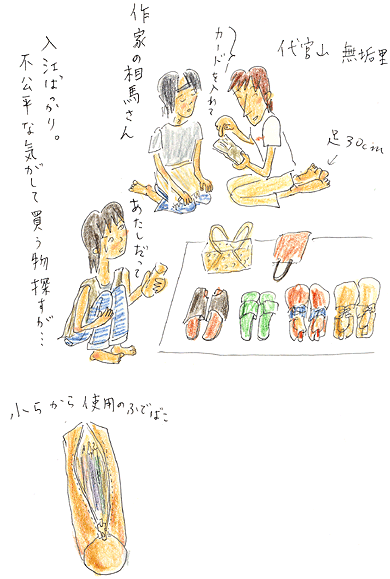 代官山 無垢里
足30cm
カードを入れて
作家の相馬さん
入江ばっかり。
不公平な気がして買う物探すが…
あたしだって
小5から使用のふでばこ